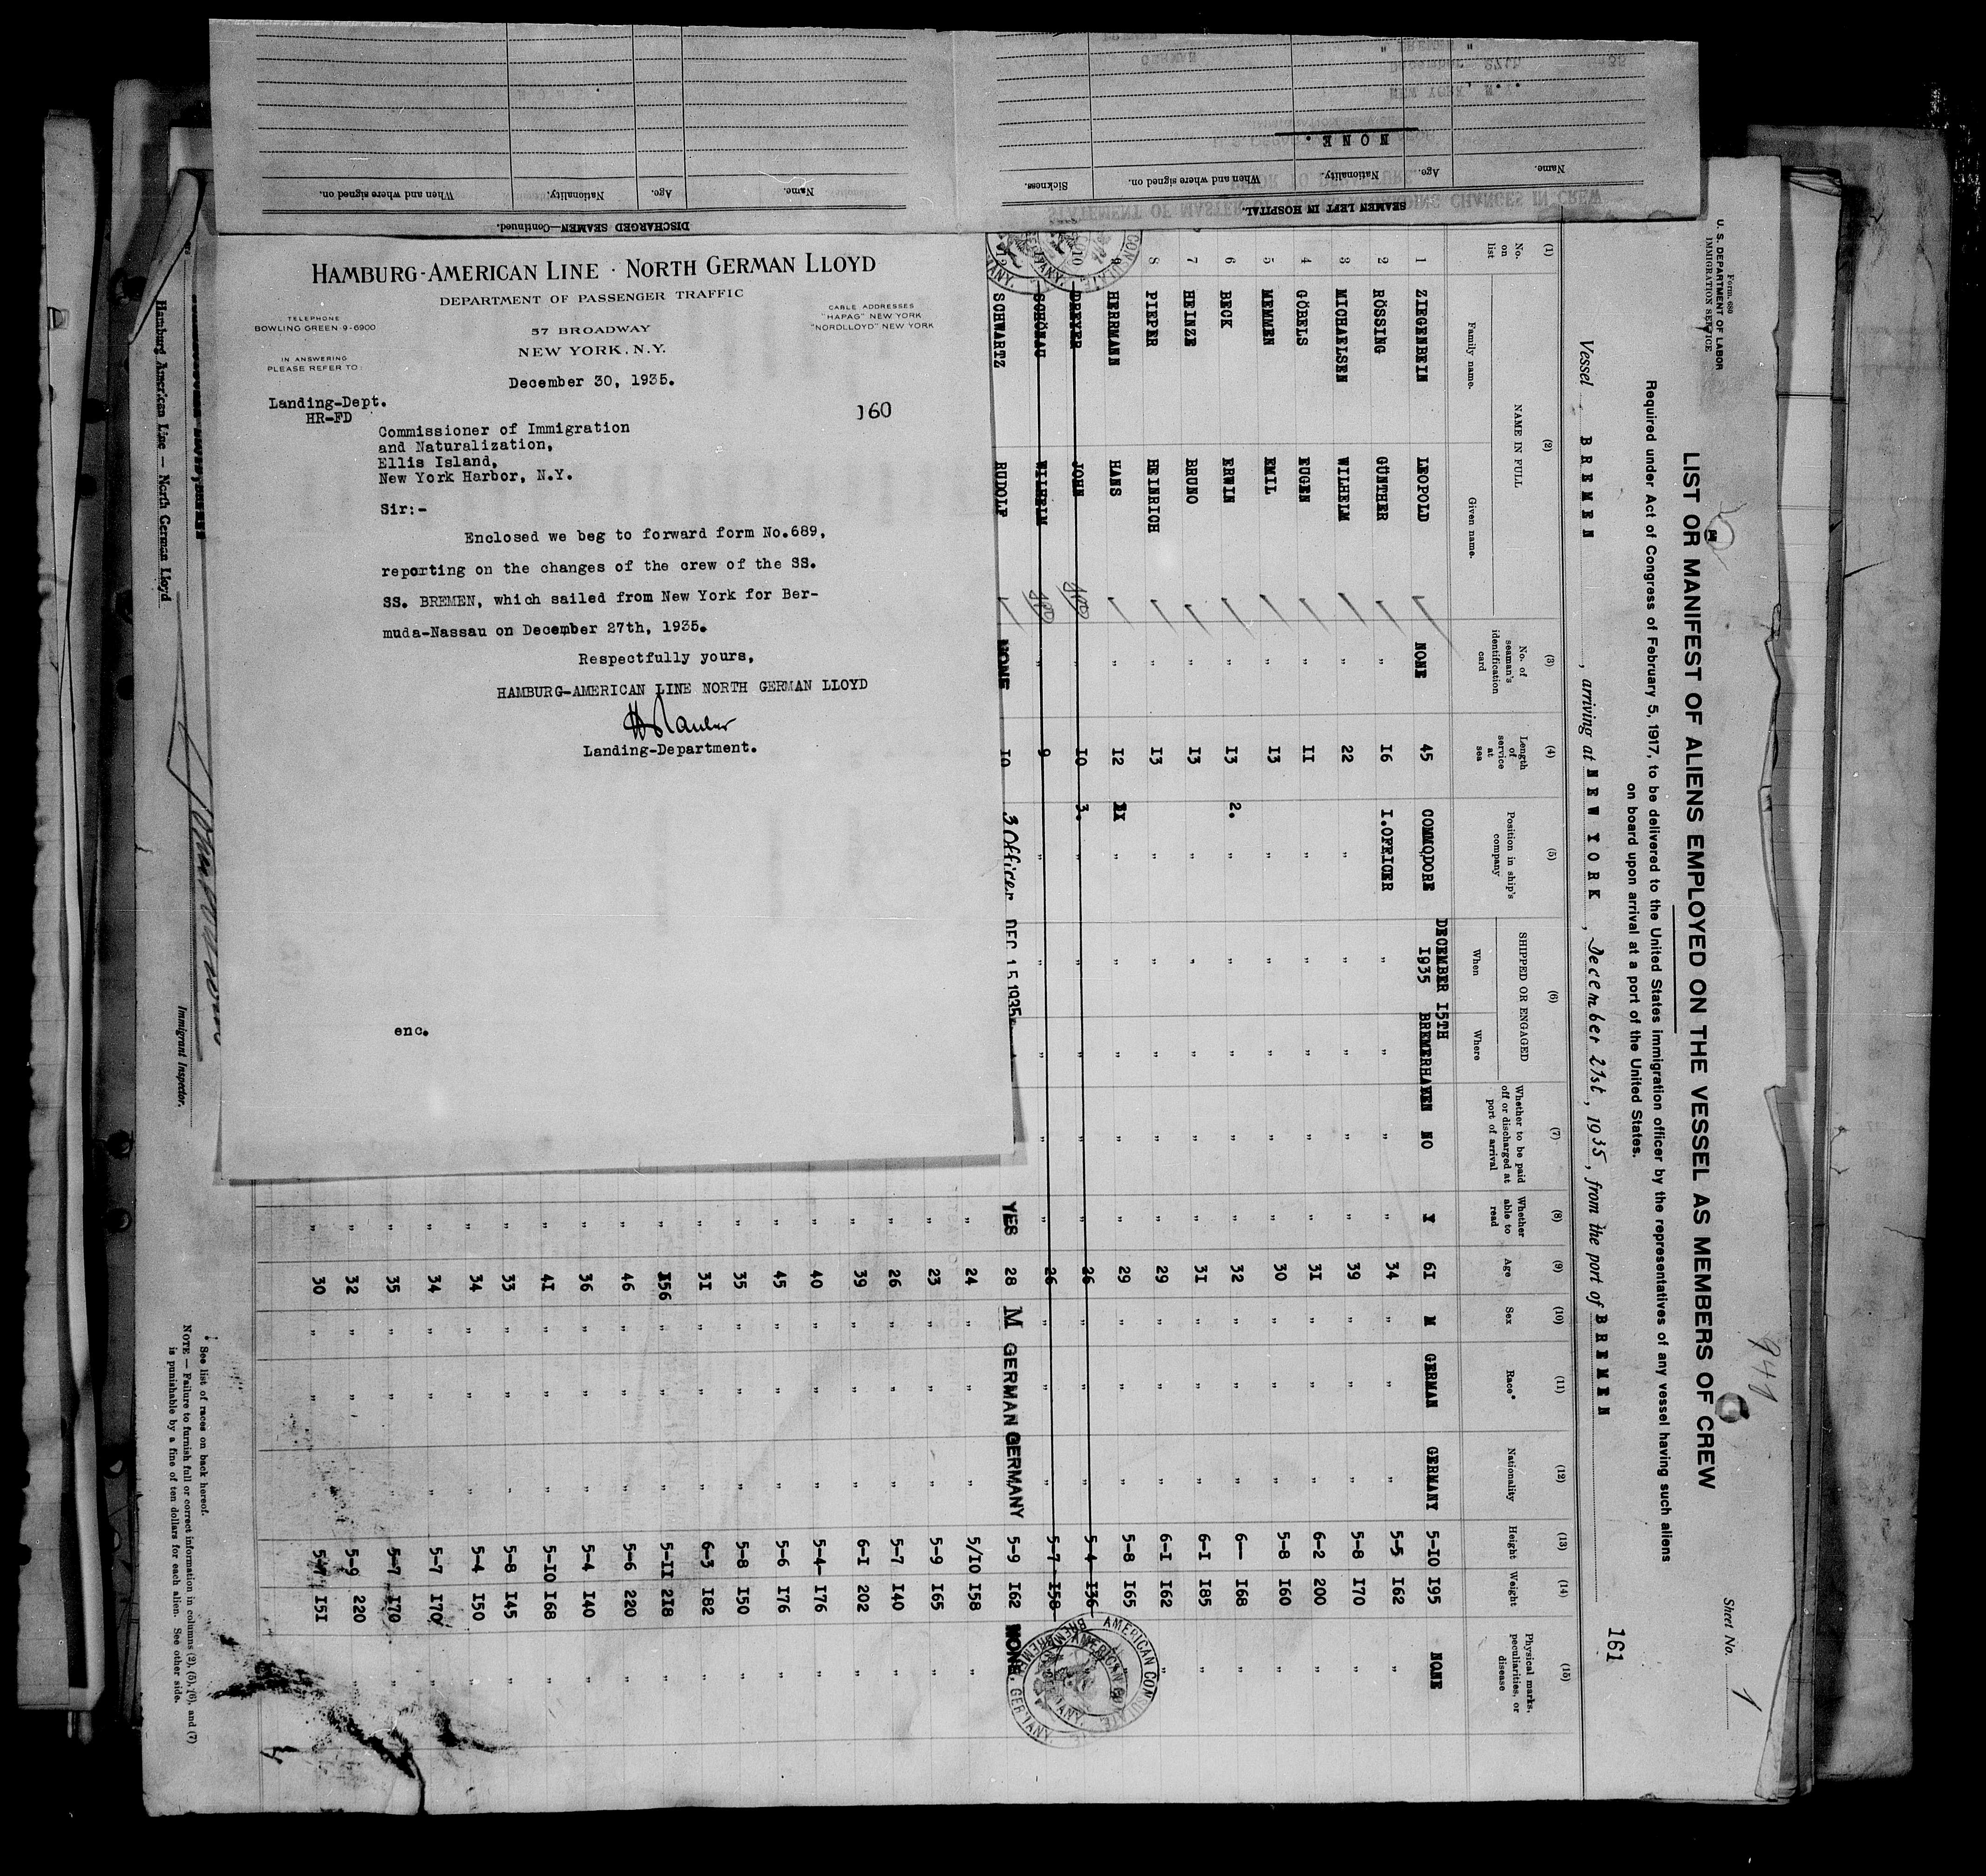 DISCHARGED SEAMEN—Continued.
Name.
Age.
Nationality.
When and where signed on.
SEAMEN LEFT IN HOSPITAL.
Name.
Age.
Nationality.
When and where signed on.
Sickness.
NONE.
HAMBURG-AMERICAN LINE · NORTH GERMAN LLOYD
DEPARTMENT OF PASSENGER TRAFFIC
TELEPHONE
BOWLING GREEN 9-6900
57 BROADWAY
NEW YORK, N.Y.
CABLE ADDRESSES
"HAPAG" NEW YORK
"NORDLLOYD" NEW YORK
IN ANSWERING
PLEASE REFER TO:
December 30, 1935.
Landing-Dept.
HR-FD
160
Commissioner of Immigration
and Naturalization,
Ellis Island,
New York Harbor, N.Y.
Sir:-
Enclosed we beg to forward form No.689,
reporting on the changes of the crew of the SS.
SS. BREMEN, which sailed from New York for Ber-
muda-Nassau on December 27th, 1935.
Respectfully yours,
HAMBURG-AMERICAN LINE NORTH GERMAN LLOYD
Landing-Department.
enc.
Form 680
U. S. DEPARTMENT OF LABOR
IMMIGRATION SERVICE
Sheet No. 1
LIST OR MANIFEST OF ALIENS EMPLOYED ON THE VESSEL AS MEMBERS OF CREW
Required under Act of Congress of February 5, 1917, to be delivered to the United States immigration officer by the representatives of any vessel having such aliens
on board upon arrival at a port of the United States.
161
Vessel BREMEN, arriving at NEW YORK, December 21st, 1935, from the port of BREMEN
(1) (2) (3) (4) (5) (6) (7) (8) (9) (10) (11) (12) (13) (14) (15)
No. on list
NAME IN FULL
Family name.
Given name.
No. of seaman's identification card
Length of service at sea
Position in ship's company
SHIPPED OR ENGAGED
When
Where
Whether to be paid off or discharged at port of arrival
Whether able to read
Age
Sex
Race*
Nationality
Height
Weight
Physical marks, peculiarities, or disease
1 ZIEGENBEIN LEOPOLD NONE 45 COMMODORE DECEMBER 15TH 1935 BREMERHAVEN NO Y 61 M GERMAN GERMANY 5-10 195 NONE
2 RÖSSING GÜNTHER " 16 I.OFFICER " " " " 34 " " " 5-5 162 "
3 MICHAELSEN WILHELM " 22 " " " " " 39 " " " 5-8 170 "
4 GÖBELS EUGEN " 11 " " " " " 31 " " " 6-2 200 "
5 MEMMEN EMIL " 13 " " " " " 30 " " " 5-8 160 "
6 BECK ERWIN " 13 2. " " " " " 32 " " " 6-- 168 "
7 HEINZE BRUNO " 13 " " " " " 31 " " " 6-1 185 "
8 PIEPER HEINRICH " 13 " " " " " 29 " " " 6-1 162 "
9 HERRMANN HANS " 12 " " " " " 29 " " " 5-8 165 "
10 DREYER JOHN " 10 3. " " " " " 26 " " " 5-4 136
SCHÖNAU WILHELM " 9 " " " " " 26 " " " 5-7 158
SCHWARTZ RUDOLF NONE 10 3 Officer DEC 15 1935 YES 28 M GERMAN GERMANY 5-9 162 NONE
" 24 " " " 5/10 158 "
" 23 " " " 5-9 165 "
" 26 " " " 5-7 140 "
" 39 " " " 6-1 202 "
" 40 " " " 5-4- 176 "
" 45 " " " 5-6 176 "
" 35 " " " 5-8 150 "
" 31 " " " 6-3 182 "
" 56 " " " 5-11 218 "
" 46 " " " 5-6 220 "
" 36 " " " 5-4 140 "
" 41 " " " 5-10 168 "
" 33 " " " 5-8 145 "
" 34 " " " 5-4 150 "
" 34 " " " 5-7 170 "
" 35 " " " 5-7 170 "
" 32 " " " 5-9 220 "
" 30 " " " 5-7 151 "
AMERICAN CONSULATE
BREMEN, GERMANY.
* See list of races on back hereof.
NOTE — Failure to furnish full or correct information in columns (2), (5), (6), and (7)
is punishable by a fine of ten dollars for each alien. See other side.
Hamburg American Line — North German Lloyd
Immigrant Inspector.